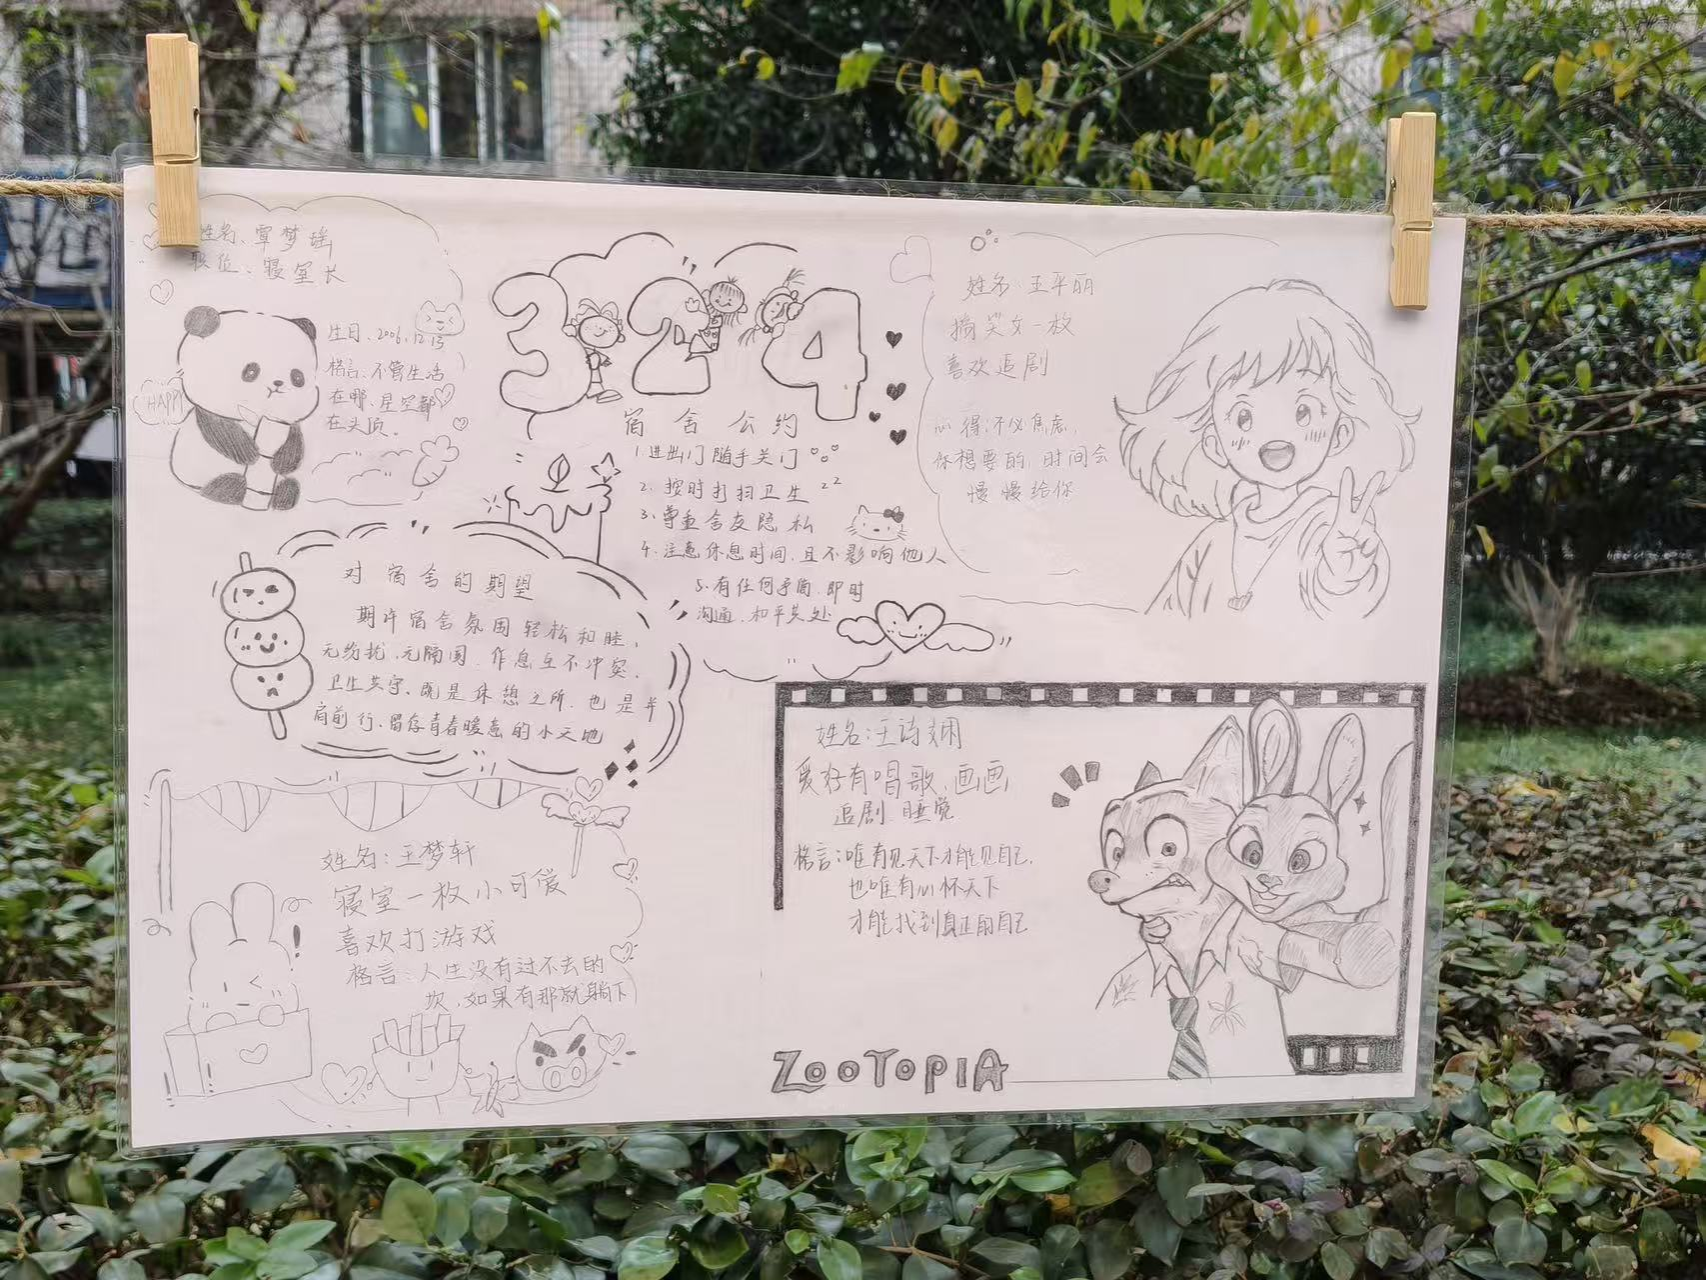 姓名、覃梦瑶
职位：寝室长
生日、2006.12.13
格言、不管生活
在哪、星空都
在头顶。
HAPPY
324
宿舍公约
1.进出门随手关门
2.按时打扫卫生
zz
3.尊重舍友隐私
4.注意休息时间,且不影响他人
5.有任何矛盾,即时
沟通,和平共处
姓名:王平丽
搞笑女一枚
喜欢追剧
心得:不必焦虑,
你想要的,时间会
慢慢给你
对宿舍的期望
期许宿舍氛围轻松和睦,
无纷扰,无隔阂,作息互不冲突.
卫生共守、既是休憩之所,也是并
肩前行、留存青春暖意的小天地
姓名:王梦轩
寝室一枚小可爱
喜欢打游戏
格言:人生没有过不去的
坎,如果有那就躺下
姓名:王诗娴
爱好有唱歌、画画
追剧 睡觉
格言:唯有见天下才能见自己,
也唯有心怀天下
才能找到真正的自己
ZOOTOPIA